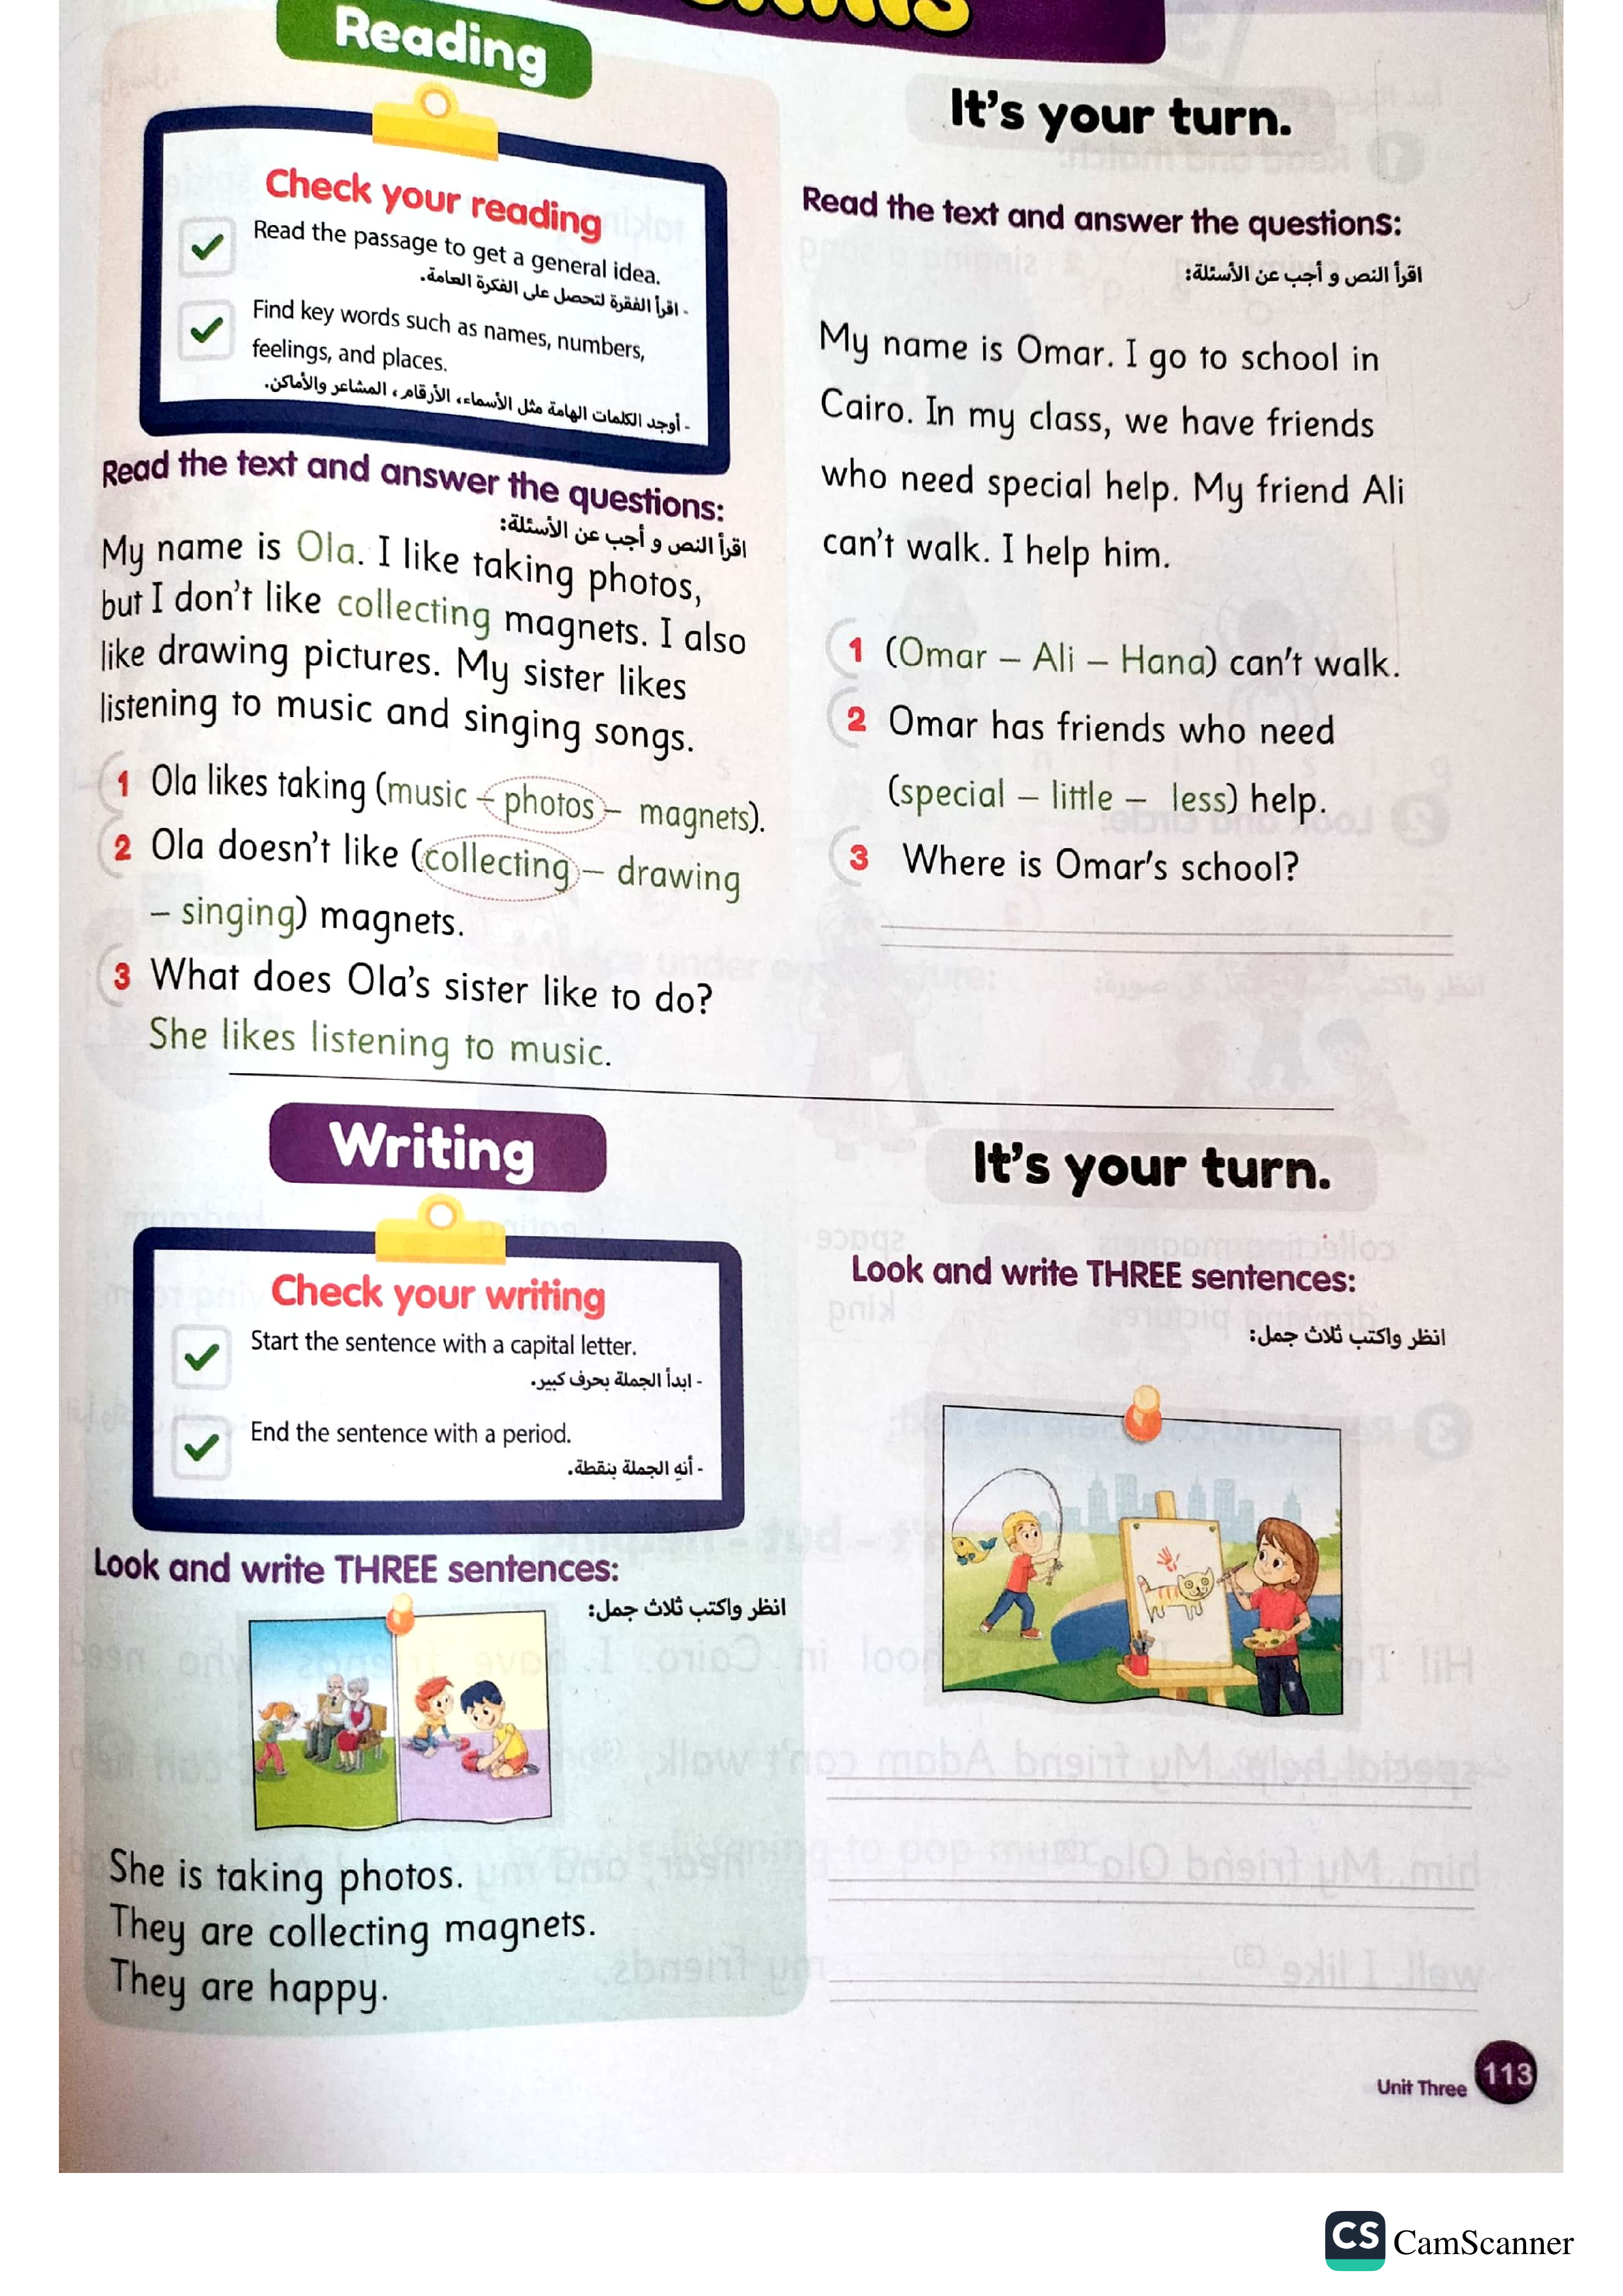 Reading
Check your reading
Read the passage to get a general idea.
- اقرأ الفقرة لتحصل على الفكرة العامة.
Find key words such as names, numbers,
feelings, and places.
- أوجد الكلمات الهامة مثل الأسماء، الأرقام، المشاعر والأماكن.
Read the text and answer the questions:
اقرأ النص و أجب عن الأسئلة:
My name is Ola. I like taking photos,
but I don't like collecting magnets. I also
like drawing pictures. My sister likes
listening to music and singing songs.
1 Ola likes taking (music – photos – magnets).
2 Ola doesn't like (collecting – drawing
– singing) magnets.
3 What does Ola's sister like to do?
She likes listening to music.
It's your turn.
Read the text and answer the questions:
اقرأ النص و أجب عن الأسئلة:
My name is Omar. I go to school in
Cairo. In my class, we have friends
who need special help. My friend Ali
can't walk. I help him.
1 (Omar – Ali – Hana) can't walk.
2 Omar has friends who need
(special – little – less) help.
3 Where is Omar's school?
Writing
Check your writing
Start the sentence with a capital letter.
- ابدأ الجملة بحرف كبير.
End the sentence with a period.
- أنهِ الجملة بنقطة.
Look and write THREE sentences:
انظر واكتب ثلاث جمل:
She is taking photos.
They are collecting magnets.
They are happy.
It's your turn.
Look and write THREE sentences:
انظر واكتب ثلاث جمل:
Unit Three 113
CS CamScanner